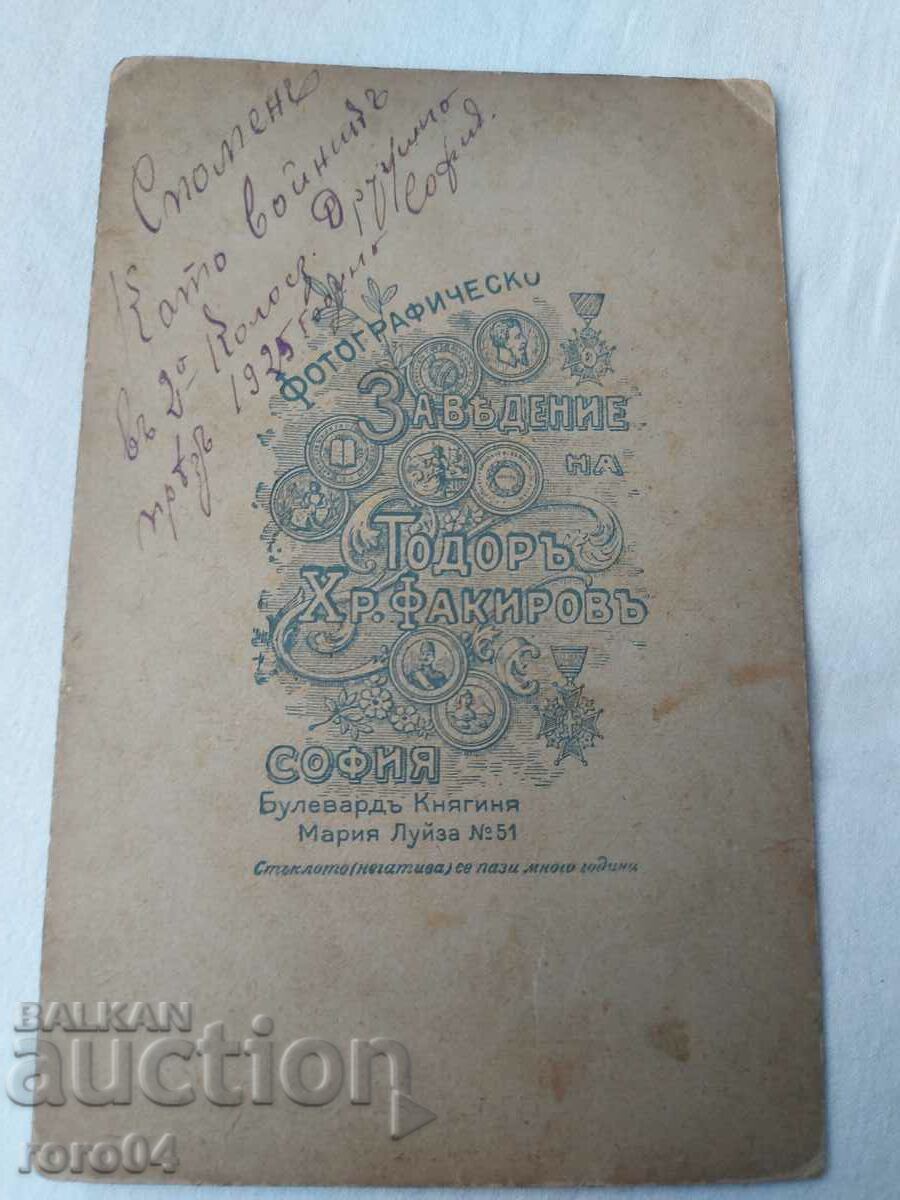 Споменъ
Като войникъ
въ 2о Колоез. Дружина
прѣзъ 1925 година София.
ФОТОГРАФИЧЕСКО
ЗАВѢДЕНИЕ
НА
ТОДОРЪ
ХР. ФАКИРОВЪ
СОФИЯ
Булевардъ Княгиня
Мария Луйза №51
Стъклото (негатива) се пази много години
BALKAN
auction
roro04